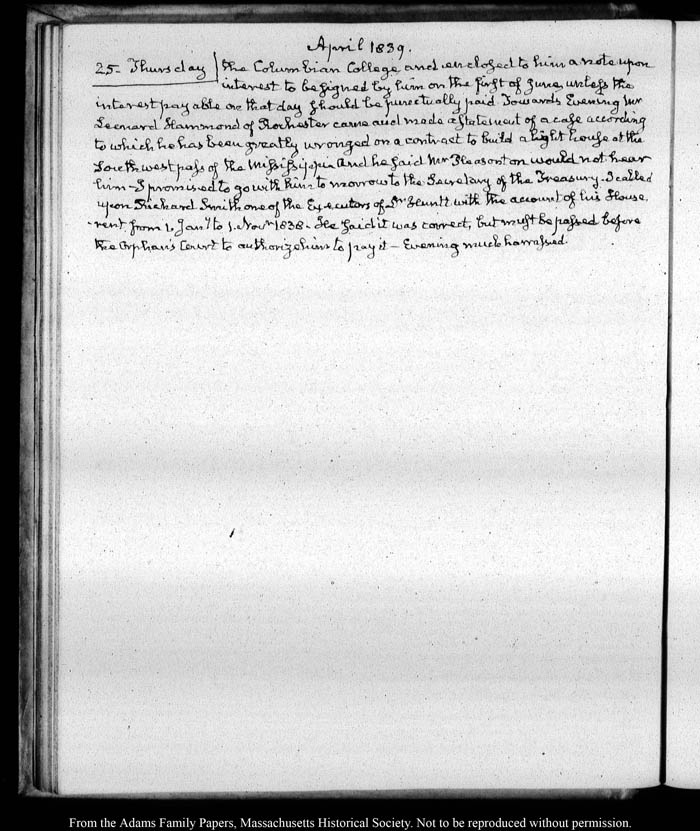 April 1839.
25. Thursday the Columbian College and enclosed to him a note upon
interest to be signed by him on the first of June, unless the
interest payable on that day should be punctually paid. Towards Evening Mr
Leonard Hammond of Rochester came and made a Statement of a case according
to which he has been greatly wronged on a contract to build a Light house at the
Southwest pass of the Mississippi and he said Mr Pleasonton would not hear
him – I promised to go with him to morrow to the Secretary of the Treasury. I called
upon Richard Smith one of the Executors of Dr Huntt with the account of his House,
rent from 1. Jany to 1. Novr 1838. He said it was correct, but must be passed before
the Orphan's Court to authorize him to pay it – Evening much harrassed.
From the Adams Family Papers, Massachusetts Historical Society. Not to be reproduced without permission.